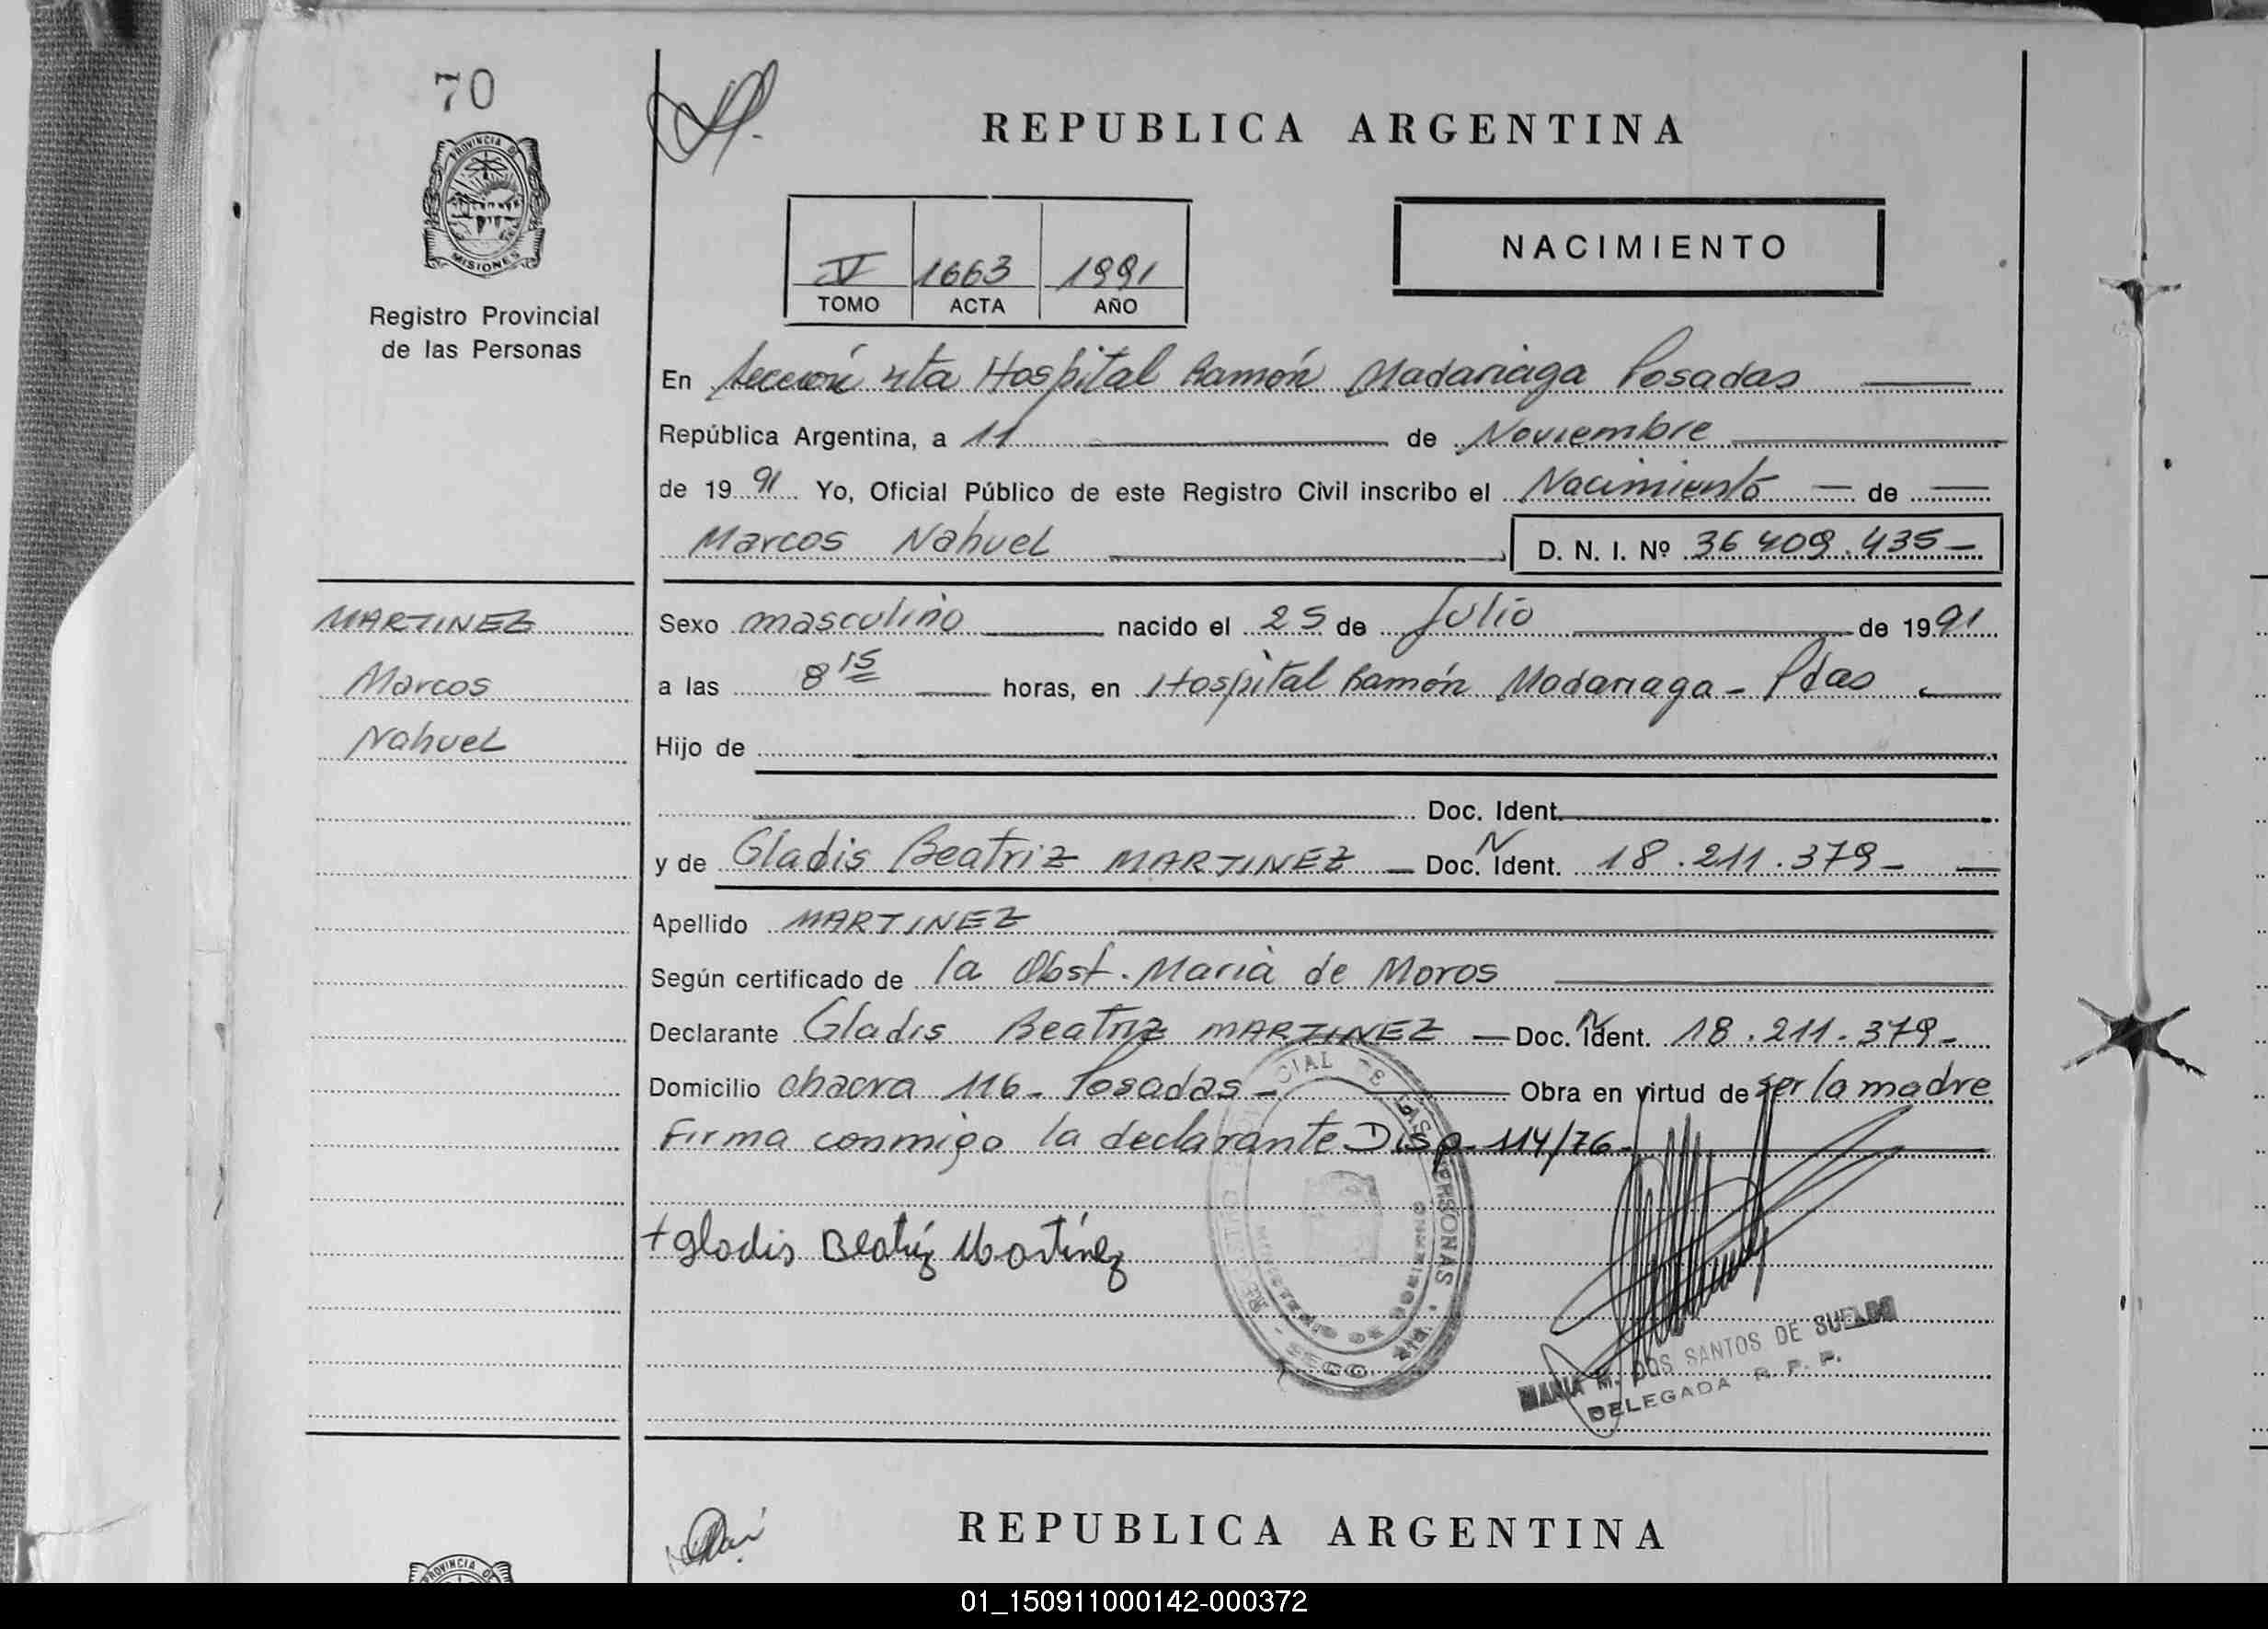 70
PROVINCIA DE
MISIONES
Registro Provincial
de las Personas
REPUBLICA ARGENTINA
NACIMIENTO
V 1663 1991
TOMO ACTA AÑO
En Sección 4ta Hospital Ramón Madariaga Posadas
República Argentina, a 11 de Noviembre
de 1991 Yo, Oficial Público de este Registro Civil inscribo el Nacimiento de
Marcos Nahuel D. N. I. Nº 36 409.435
MARTINEZ
Marcos
Nahuel
Sexo masculino nacido el 25 de Julio de 1991
a las 8 15 horas, en Hospital Ramón Madariaga - Pdas
Hijo de
Doc. Ident.
y de Gladis Beatriz MARTINEZ Doc. N Ident. 18.211.379
Apellido MARTINEZ
Según certificado de la Obst. Maria de Moros
Declarante Gladis Beatriz MARTINEZ Doc. N Ident. 18.211.379
Domicilio chacra 116 - Posadas - Obra en virtud de ser la madre
Firma conmigo la declarante Disp. 114/76
+ Gladis Beatriz Martínez
REGISTRO CIAL DE LAS PERSONAS
MINISTERIO DE GOBIERNO
MARIA M. DOS SANTOS DE SUELDO
DELEGADA R. P. P.
REPUBLICA ARGENTINA
PROVINCIA DE
01_150911000142-000372